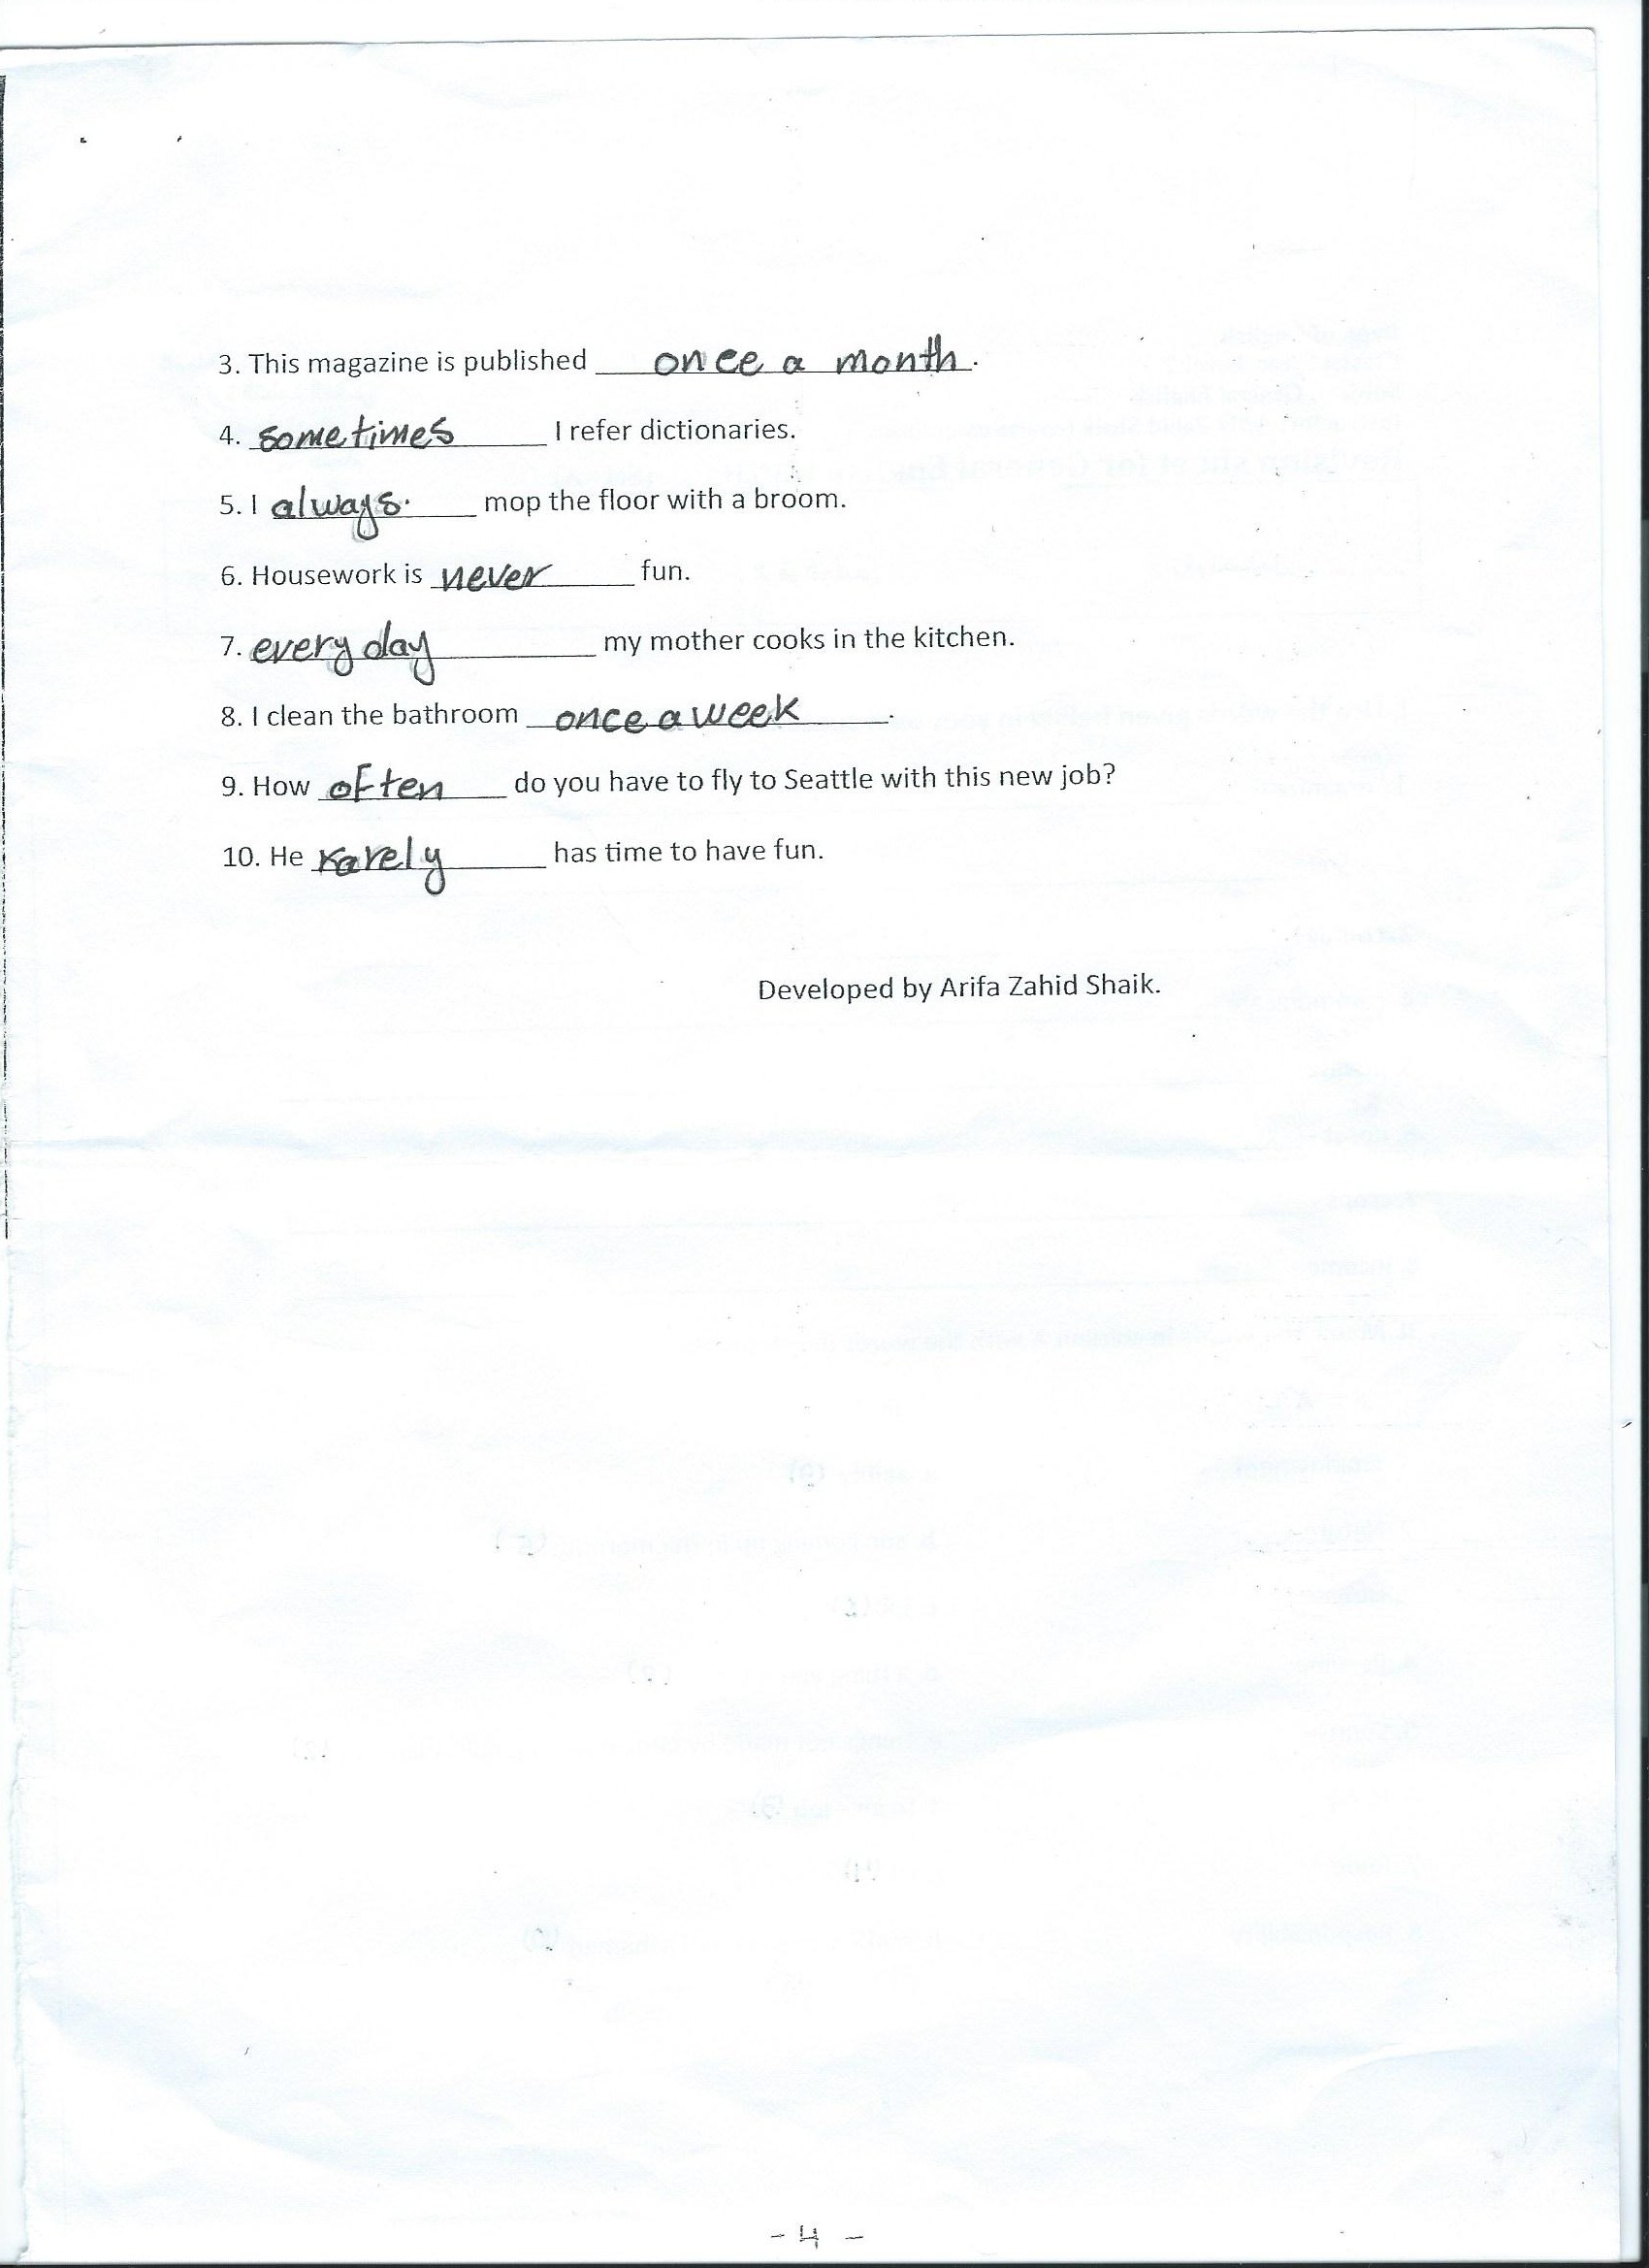 3. This magazine is published once a month.
4. sometimes I refer dictionaries.
5. I always. mop the floor with a broom.
6. Housework is never fun.
7. every day my mother cooks in the kitchen.
8. I clean the bathroom once a week.
9. How often do you have to fly to Seattle with this new job?
10. He rarely has time to have fun.
Developed by Arifa Zahid Shaik.
- 4 -